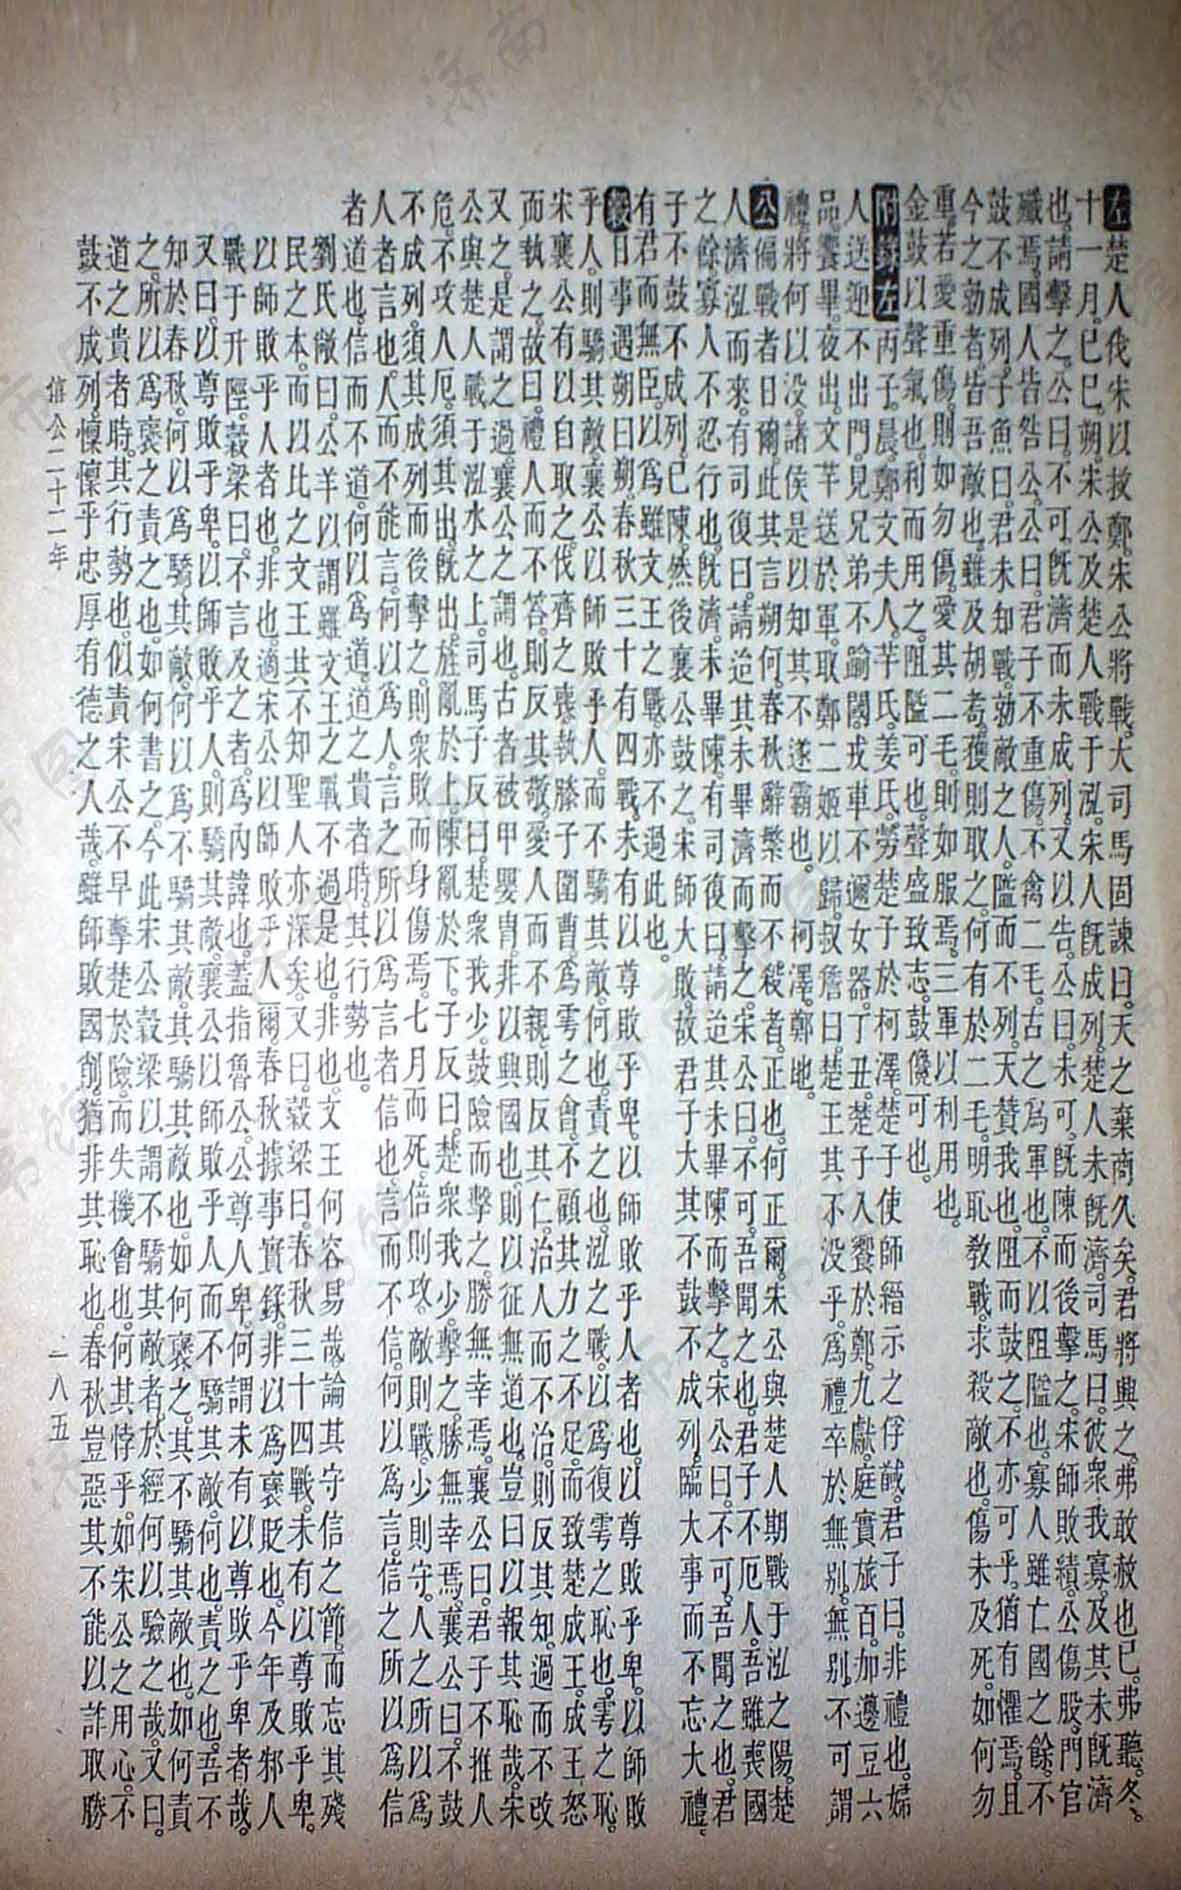 左楚人伐宋以救鄭宋公將戰大司馬固諫曰天之棄商久矣君將興之弗敢赦也已弗聽冬
十一月己巳朔宋公及楚人戰于泓宋人既成列楚人未既濟司馬曰彼衆我寡及其未既濟
也請擊之公曰不可既濟而未成列又以告公曰未可既陳而後擊之宋師敗績公傷股門官
殲焉國人皆咎公公曰君子不重傷不禽二毛古之爲軍也不以阻隘也寡人雖亡國之餘不
鼓不成列子魚曰君未知戰勍敵之人隘而不列天贊我也阻而鼓之不亦可乎猶有懼焉且
今之勍者皆吾敵也雖及胡耇獲則取之何有於二毛明恥敎戰求殺敵也傷未及死如何勿
重若愛重傷則如勿傷愛其二毛則如服焉三軍以利用也
金鼓以聲氣也利而用之阻隘可也聲盛致志鼓儳可也
附錄左丙子晨鄭文夫人羋氏姜氏勞楚子於柯澤楚子使師縉示之俘馘君子曰非禮也婦
人送迎不出門見兄弟不踰閾戎車不邇女器丁丑楚子入饗於鄭九獻庭實旅百加籩豆六
品饗畢夜出文羋送於軍取鄭二姬以歸叔詹曰楚王其不没乎爲禮卒於無別無別不可謂
禮將何以没諸侯是以知其不遂霸也柯澤鄭地
公偏戰者日爾此其言朔何春秋辭繁而不殺者正也何正爾宋公與楚人期戰于泓之陽楚
人濟泓而來有司復曰請迨其未畢濟而擊之宋公曰不可吾聞之也君子不厄人吾雖喪國
之餘寡人不忍行也既濟未畢陳有司復曰請迨其未畢陳而擊之宋公曰不可吾聞之也君
子不鼓不成列已陳然後襄公鼓之宋師大敗故君子大其不鼓不成列臨大事而不忘大禮
有君而無臣以爲雖文王之戰亦不過此也
穀日事遇朔曰朔春秋三十有四戰未有以尊敗乎卑以師敗乎人者也以尊敗乎卑以師敗
乎人則驕其敵襄公以師敗乎人而不驕其敵何也責之也泓之戰以爲復雩之恥也雩之恥
宋襄公有以自取之伐齊之喪執滕子圍曹爲雩之會不顧其力之不足而致楚成王成王怒
而執之故曰禮人而不答則反其敬愛人而不親則反其仁治人而不治則反其知過而不改
又之是謂之過襄公之謂也古者被甲嬰冑非以興國也則以征無道也豈曰以報其恥哉宋
公與楚人戰于泓水之上司馬子反曰楚衆我少鼓險而擊之勝無幸焉襄公曰君子不推人
危不攻人厄須其出既出旌亂於上陳亂於下子反曰楚衆我少擊之勝無幸焉襄公曰不鼓
不成列須其成列而後擊之則衆敗而身傷焉七月而死倍則攻敵則戰少則守人之所以爲
人者言也人而不能言何以爲人言之所以爲言者信也言而不信何以爲言信之所以爲信
者道也信而不道何以爲道道之貴者時其行勢也
劉氏敞曰公羊以謂雖文王之戰不過是也非也文王何容易哉論其守信之節而忘其殘
民之本而以比之文王其不知聖人亦深矣又曰穀梁曰春秋三十四戰未有以尊敗乎卑
以師敗乎人者也非也適宋公以師敗乎人爾春秋據事實錄非以爲襃貶也今年及邾人
戰于升陘穀梁曰不言及之者爲內諱也蓋指魯公公尊人卑何謂未有以尊敗乎卑者哉
又曰以尊敗乎卑以師敗乎人則驕其敵襄公以師敗乎人而不驕其敵何也責之也吾不
知於春秋何以爲驕其敵何以爲不驕其敵其驕其敵也如何襃之其不驕其敵也如何責
之所以爲襃之責之也如何書之今此宋公穀梁以謂不驕其敵者於經何以驗之哉又曰
道之貴者時其行勢也似責宋公不早擊楚於險而失機會也何其悖乎如宋公之用心不
鼓不成列慄慄乎忠厚有德之人哉雖師敗國削猶非其恥也春秋豈惡其不能以詐取勝
僖公二十二年
一八五